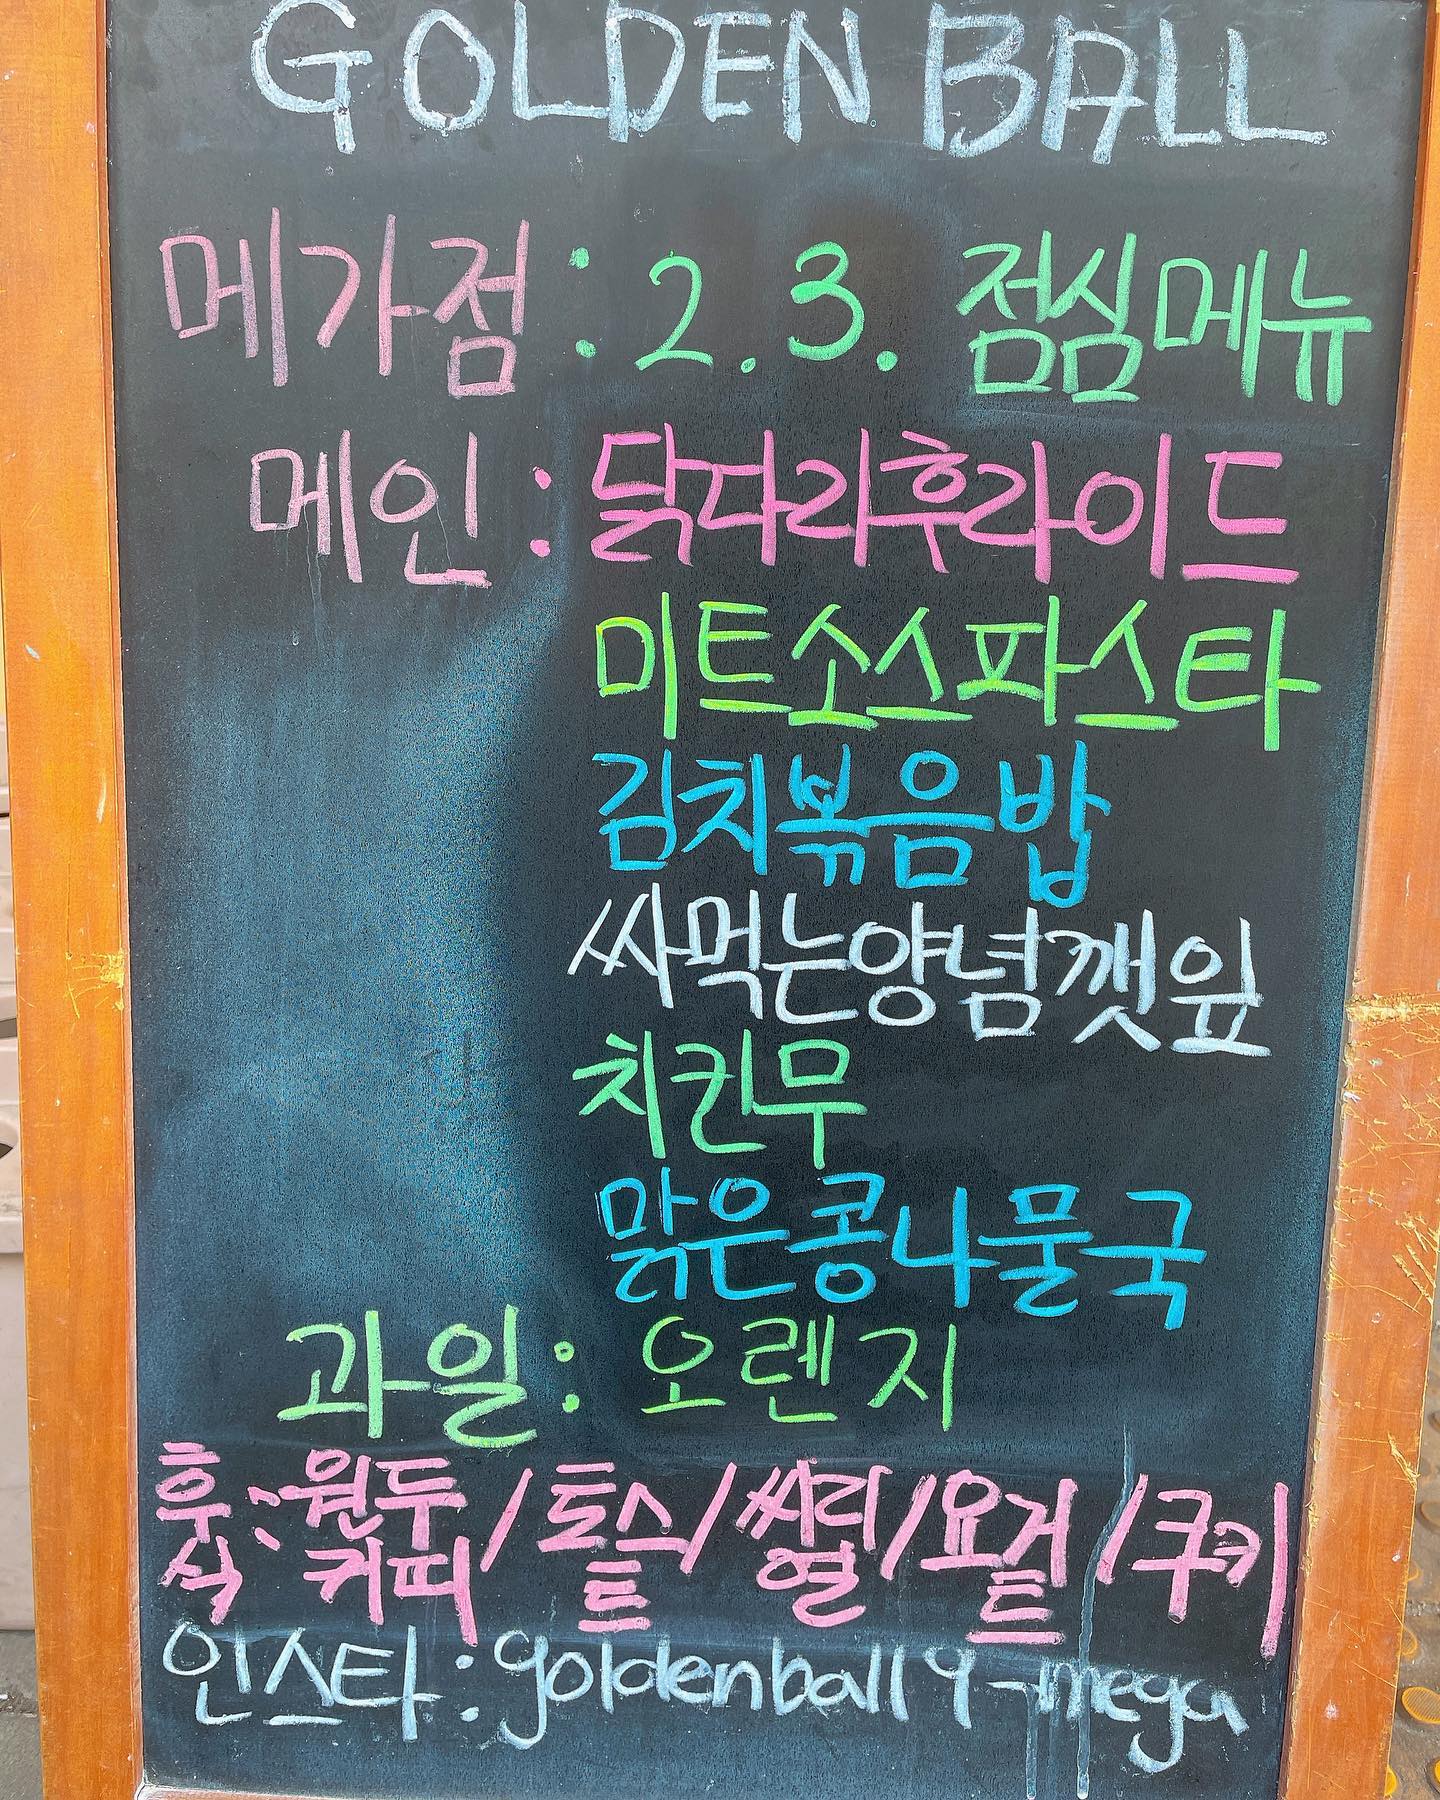 GOLDEN BALL
메가점 : 2.3. 점심메뉴
메인 : 닭다리후라이드
미트소스파스타
김치볶음밥
싸먹는양념깻잎
치킨무
맑은콩나물국
과일 : 오렌지
후식 : 원두커피 / 토스트 / 씨리얼 / 요거트 / 쿠키
인스타 : goldenball9_mega